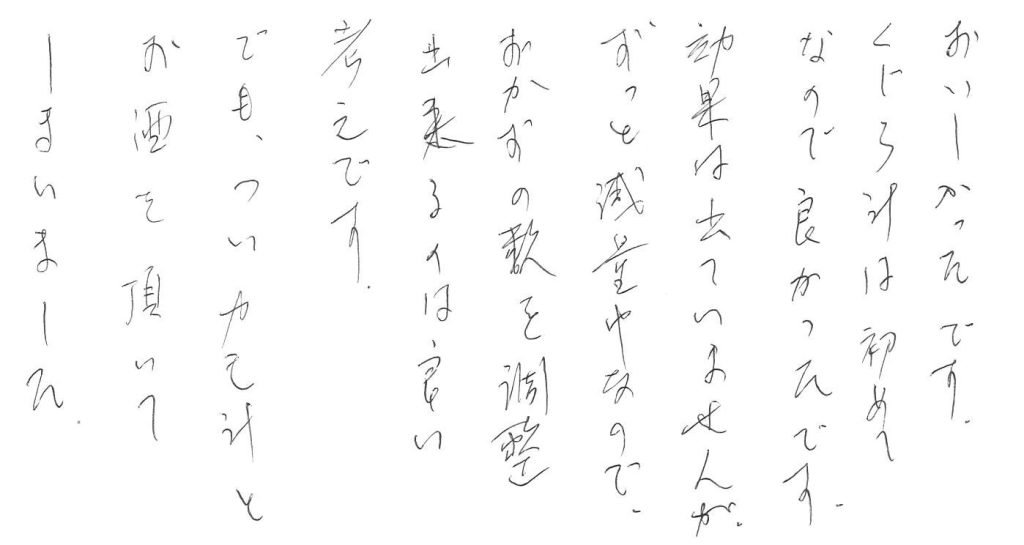 おいしかったです。
くじら汁は初めて
なので良かったです。
効果は出ていませんが、
ずっと減量中なので、
おかずの数を調整
出来るのは良い
考えです。
でも、ついカモ汁と
お酒を頂いて
しまいました。